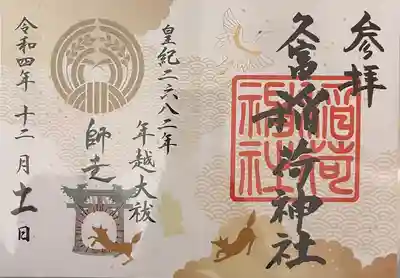 参拝
久富稲荷神社
稲荷神社
皇紀二六八二年
年越大祓
師走
令和四年 十二月 十一日